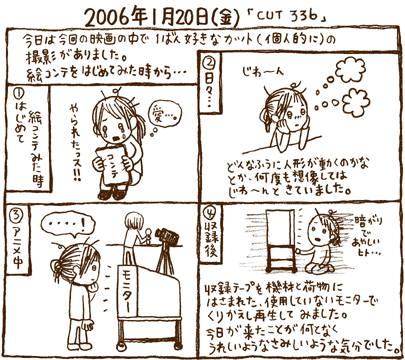 2006年1月20日(金)「CUT 336」
今日は今回の映画の中で1ばん好きなカット(個人的に)の
撮影がありました。
絵コンテをはじめてみた時から…
①はじめて
絵コンテみた時
愛…
やられたっス!!
コンテ
②日々…
じわ〜ん
どんなふうに人形が動くのかな
とか、何度も想像しては
じわ〜んときていました。
③アニメ中
・・・・!
モニター
④収録後
暗がりで
あやしい
ヒト…
収録テープを機材と荷物に
はさまれた、使用していないモニターで
くりかえし再生してみました。
今日が来たことが何となく
うれしいようなさみしいような気分でした。